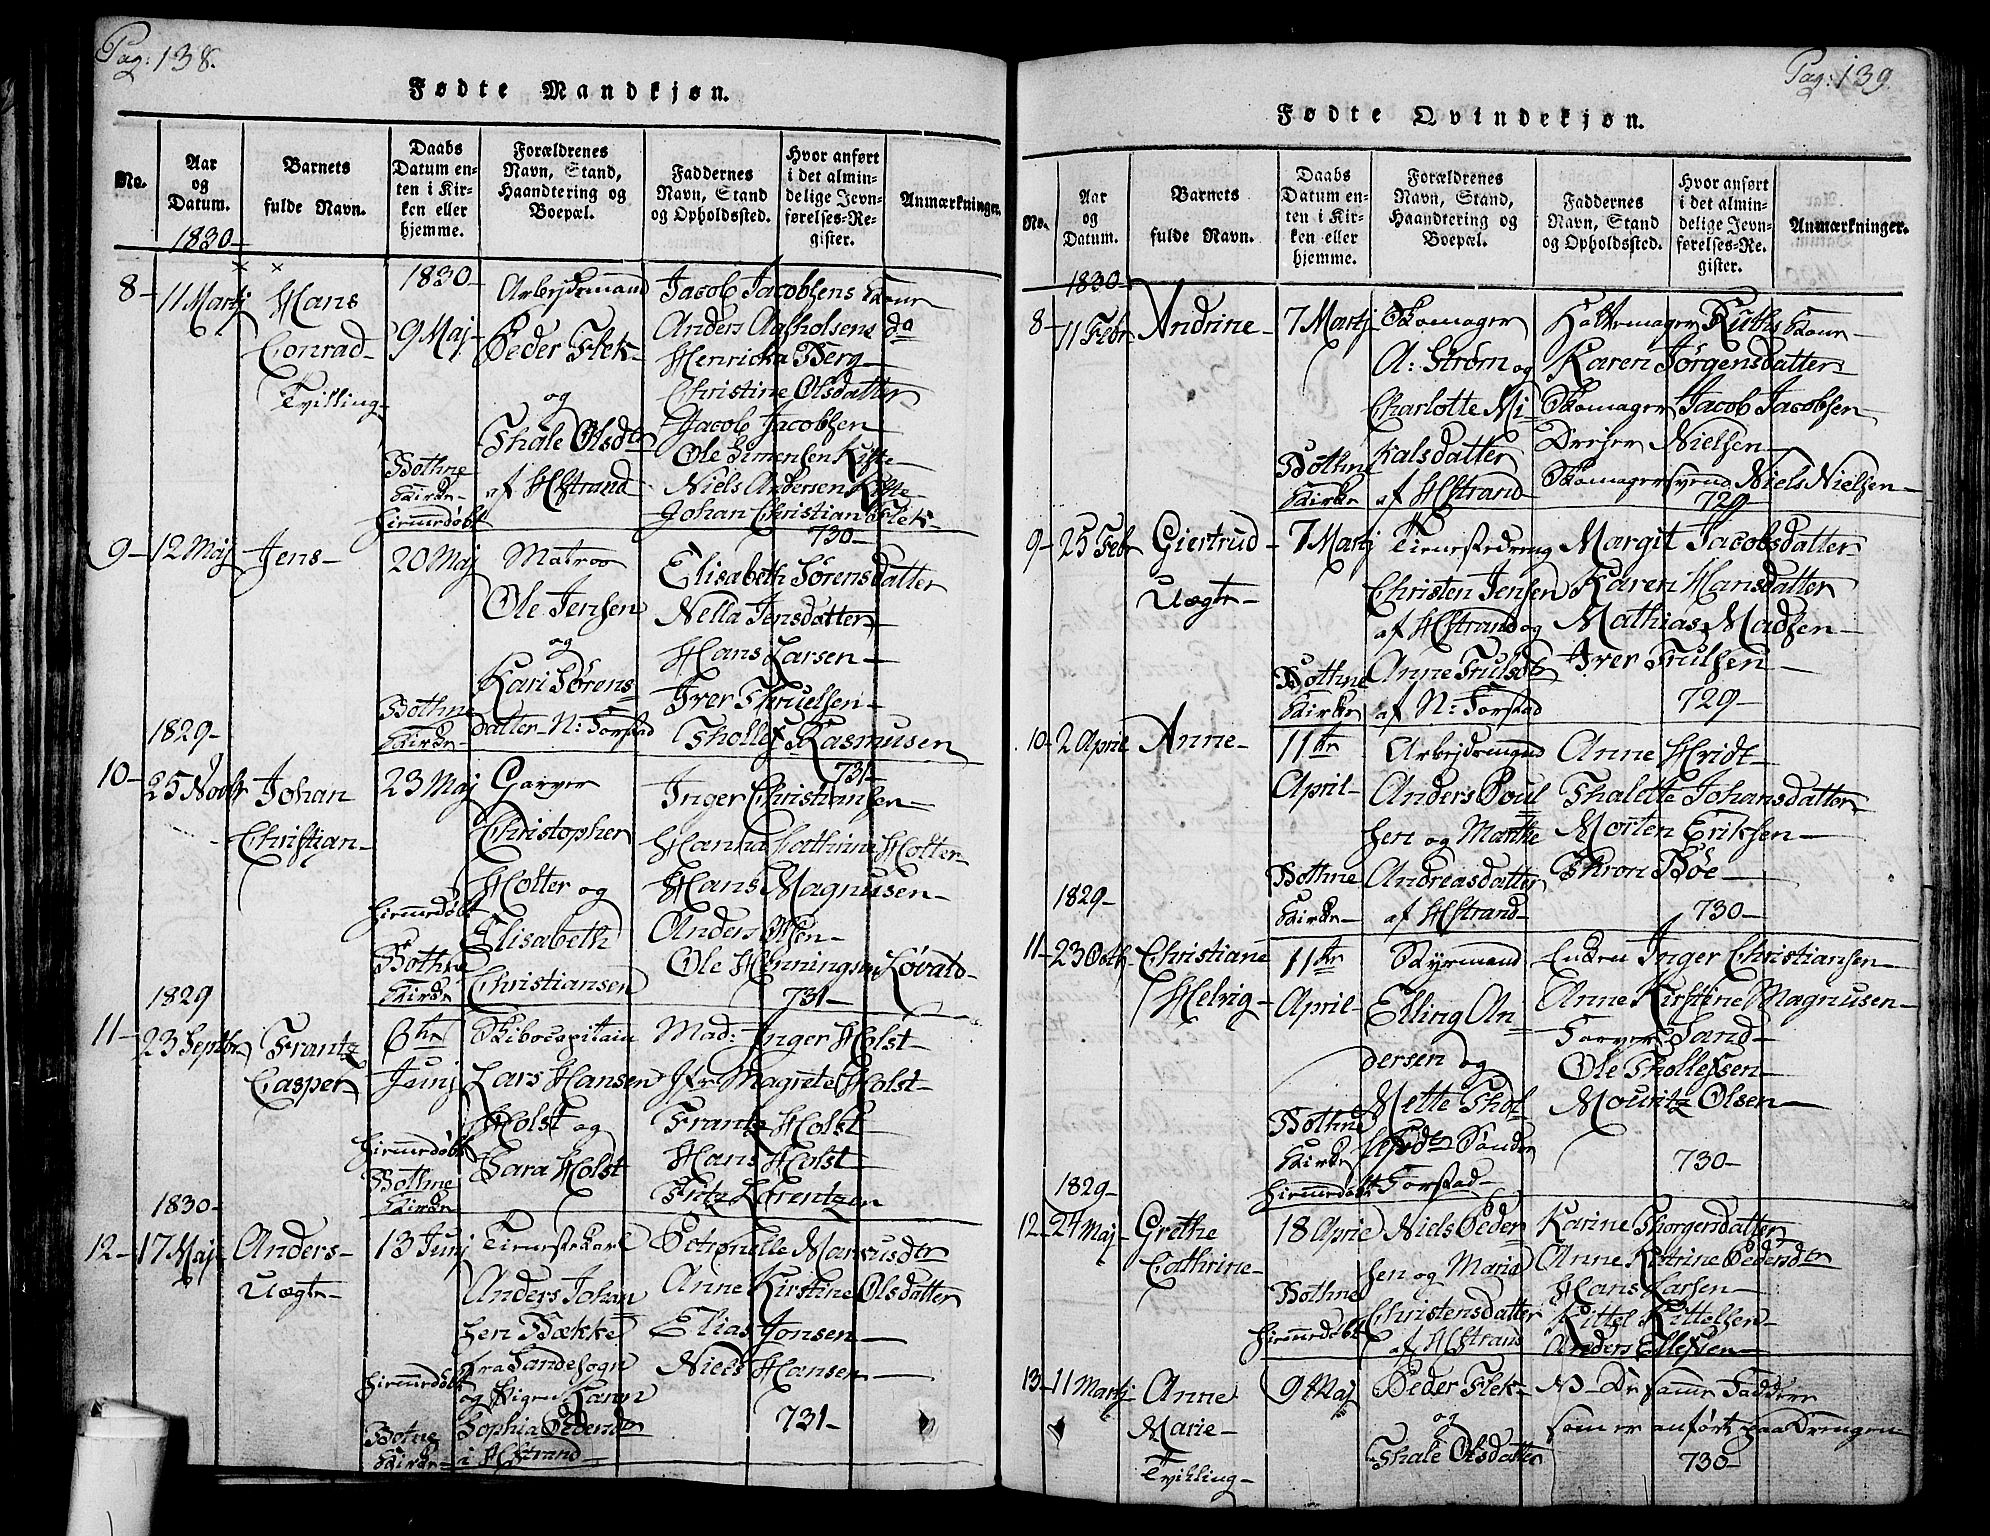 Pag: 138.
Fødte Mandkjøn.
No.
Aar
og
Datum.
Barnets
fulde Navn.
Daabs
Datum en-
ten i Kir-
ken eller
hjemme.
Forældrenes
Navn, Stand,
Haandtering og
Boepæl.
Faddernes
Navn, Stand
og Opholdssted.
Hvor anført
i det almin-
delige Jevn-
førelses-Re-
gister.
Anmærkninger.
1830-
8-
11 Martj
Hans
Conrad-
Tvilling-
1830-
9 Maj-
Bothne
Kirke-
hiemmedøbt
Arbejdsmand
Peder Flek-
og
Thale Olsdtr
af HStrand
Jacob Jacobsens Kone
Anders Aafholsens do
Henricka Berg-
Christine Olsdatter
Jacob Jacobsen-
Ole Simensen Kifte-
Niels Andersen Kifte
Johan Christian Flek-
730-
9-
12 Maj
Jens-
20 Maj
Bothne
Kirke-
Matros
Ole Jensen
og
Kari Sørens-
datter N: Forstad
Elisabeth Sørensdatter
Nella Jensdatter-
Hans Larsen-
Iver Thruelsen-
Thollef Rasmusen
731-
1829-
10-
25 Novbr
Johan
Christian-
23 Maj
hiemmedøbt
Bothne
Kirke
Garver
Christopher
Holter og
Elisabeth
Christiansen
Inger Christiansen-
Hanna Cathrine Holter
Hans Magnusen-
Anders Olsen-
Ole Henningsen Løvald-
731-
1829
11-
23 Septbr
Frantz
Casper-
6te
Junj
hiemmedøbt
Bothne
Kirke
Skibscapitain
Lars Hansen
Holst og
Sara Holst
Mad: Inger Holst-
Jfr Magrete Holst-
Frantz Holst
Hans Holst-
Fritz Lorentzen
1830-
12-
17 Maj-
Anders-
Uægte-
13 Junj
hiemmedøbt
Botne
Kirke-
Tieneste Karl
Anders Johan
sen Bække
fra Sandesogn
og Pigen Karen
Sophia Pedersdtr
i HStrand-
Petronelle Marcusdtr
Anne Kirstine Olsdatter
Elias Jonsen-
Niels Hansen-
731-
Pag: 139.
Fødte Qvindekjøn.
No.
Aar
og
Datum.
Barnets
fulde Navn.
Daabs
Datum en-
ten i Kir-
ken eller
hjemme.
Forældrenes
Navn, Stand,
Haandtering og
Boepæl.
Faddernes
Navn, Stand
og Opholdssted.
Hvor anført
i det almin-
delige Jevn-
førelses-Re-
gister.
Anmærkninger.
1830-
8-
11 Febr
Andrine-
7 Martj
Bothne
Kirke
Skomager
A: Strøm og
Charlotte Mi-
kalsdatter
af HStrand-
Hattemager Ruths Kone-
Karen Jørgensdatter
Skomager Jacob Jacobsen
Drejer Nielsen-
Skomagersvend Niels Nielsen-
729-
9-
25 Febr
Giertrud-
Uægte-
7 Martj
Bothne
Kirke
Tienestedreng
Christen Jensen
af HStrand og
Anne Trulsdtr
af N: Forstad
Margit Jacobsdatter
Karen Hansdatter
Mathias Madsen-
Iver Trulsen-
729-
10-
2 April
Anne-
11te
April-
Bothne
Kirke-
Arbejdsmand
Anders Poul
sen og Marthe
Andreasdatter
af HStrand-
Anne Hvidt-
Thalette Johansdatter
Morten Eriksen-
Thron Bøe-
730-
1829-
11-
23 Octb-
Christiane
Helvig-
11te
April-
Bothne
Kirke
hiemmedøbt
Styrmand
Elling An-
dersen og
Mette Thol-
lefsdtr Sønder
Forstad-
Enken Inger Christiansen-
Anne Kirstine Magnusen-
Farver Sand-
Ole Thollefsen-
Mouritz Olsen-
730-
1829-
12-
24 Maj-
Grethe
Cathrine-
18 April
Bothne
hiemmedøbt
Niels Peder
sen og Maria
Christensdatter
af HStrand
Karine Thorgersdatter
Anne Katrine Pedersdtr
Hans Larsen-
Kittel Kittelsen-
Anders Ellefsen-
13-
11 Martj
Anne
Marie-
Tvilling-
9 Maj
Peder Flek-
og
Thale Olsdatter
NB- De samme Faddere
som er anført paa Drengen
730-